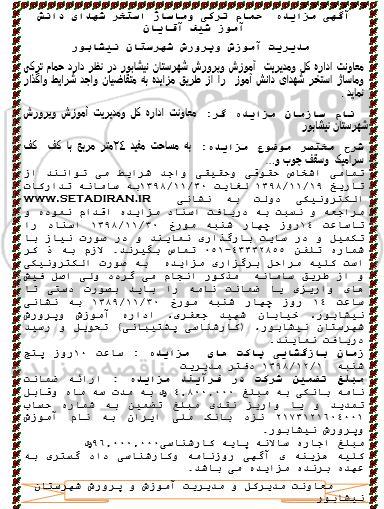 آگهی مزایده حمام ترکی وماساژ استخر شهدای دانش
آموز شیف آقایان
مدیریت آموزش وپرورش شهرستان نیشابور
معاونت اداره کل ومدیریت آموزش وپرورش شهرستان نیشابور در نظر دارد حمام ترکی
وماساژ استخر شهدای دانش آموز را از طریق مزایده به متقاضیان واجد شرایط واگذار
نماید
نام سازمان مزایده گر: معاونت اداره کل ومدیریت آموزش وپرورش
شهرستان نیشابور
شرح مختصر موضوع مزایده: به مساحت مفید ۲۴متر مربع با کف کف
سرامیک وسقف چوب و...
تمامی اشخاص حقوقی وحقیقی واجد شرایط می توانند از
تاریخ ۱۳۹۸/۱۱/۱۹ لغایت ۱۳۹۸/۱۱/۳۰به سامانه تدارکات
الکترونیکی دولت به نشانی WWW.SETADIRAN.IR
مراجعه و نسبت به دریافت اسناد مزایده اقدام نموده و
تاساعت ۱۴روز چهار شنبه مورخ ۱۳۹۸/۱۱/۳۰ اسناد را
تکمیل و در سایت بارگذاری نمایند و در صورت نیاز با
شماره تلفن ۰۵۱-۴۳۳۳۲۸۵۵ تماس بگیرند. لازم به ذکر
است کلیه مراحل برگزاری مزایده به صورت الکترونیکی
و از طریق سامانه مذکور انجام می گردد ولی اصل فیش
های واریزی یا ضمانت نامه را باید بصورت دستی تا
ساعت ۱۴ روز چهار شنبه مورخ ۱۳۸۹/۱۱/۳۰ به نشانی
نیشابور، خیابان شهید جعفری، اداره آموزش وپرورش
شهرستان نیشابور، (کارشناسی پشتیبانی) تحویل و رسید
دریافت نمایند.
زمان بازگشایی پاکت های مزایده : ساعت ۱۰روز پنج
شنبه ۱۳۹۸/۱۲/۱ دفتر مدیریت
مبلغ تضمین شرکت در فرآیند مزایده : ارائه ضمانت
نامه بانکی به مبلغ ۴،۸۰۰،۰۰۰ به مدت سه ماه وقابل
تمدید و یا واریز نقدی مبلغ تضمین به شماره حساب
۲۱۷۳۱۲۱۶۰۴۰۰۱ نزد بانک ملی ایران به نام آموزش
وپرورش نیشابور.
مبلغ اجاره سالانه پایه کارشناسی۹۶،۰۰۰،۰۰۰
کلیه هزینه ی آگهی روزنامه وکارشناسی داد گستری به
عهده برنده مزایده می باشد.
معاونت مدیرکل و مدیریت آموزش و پرورش شهرستان
نیشابور